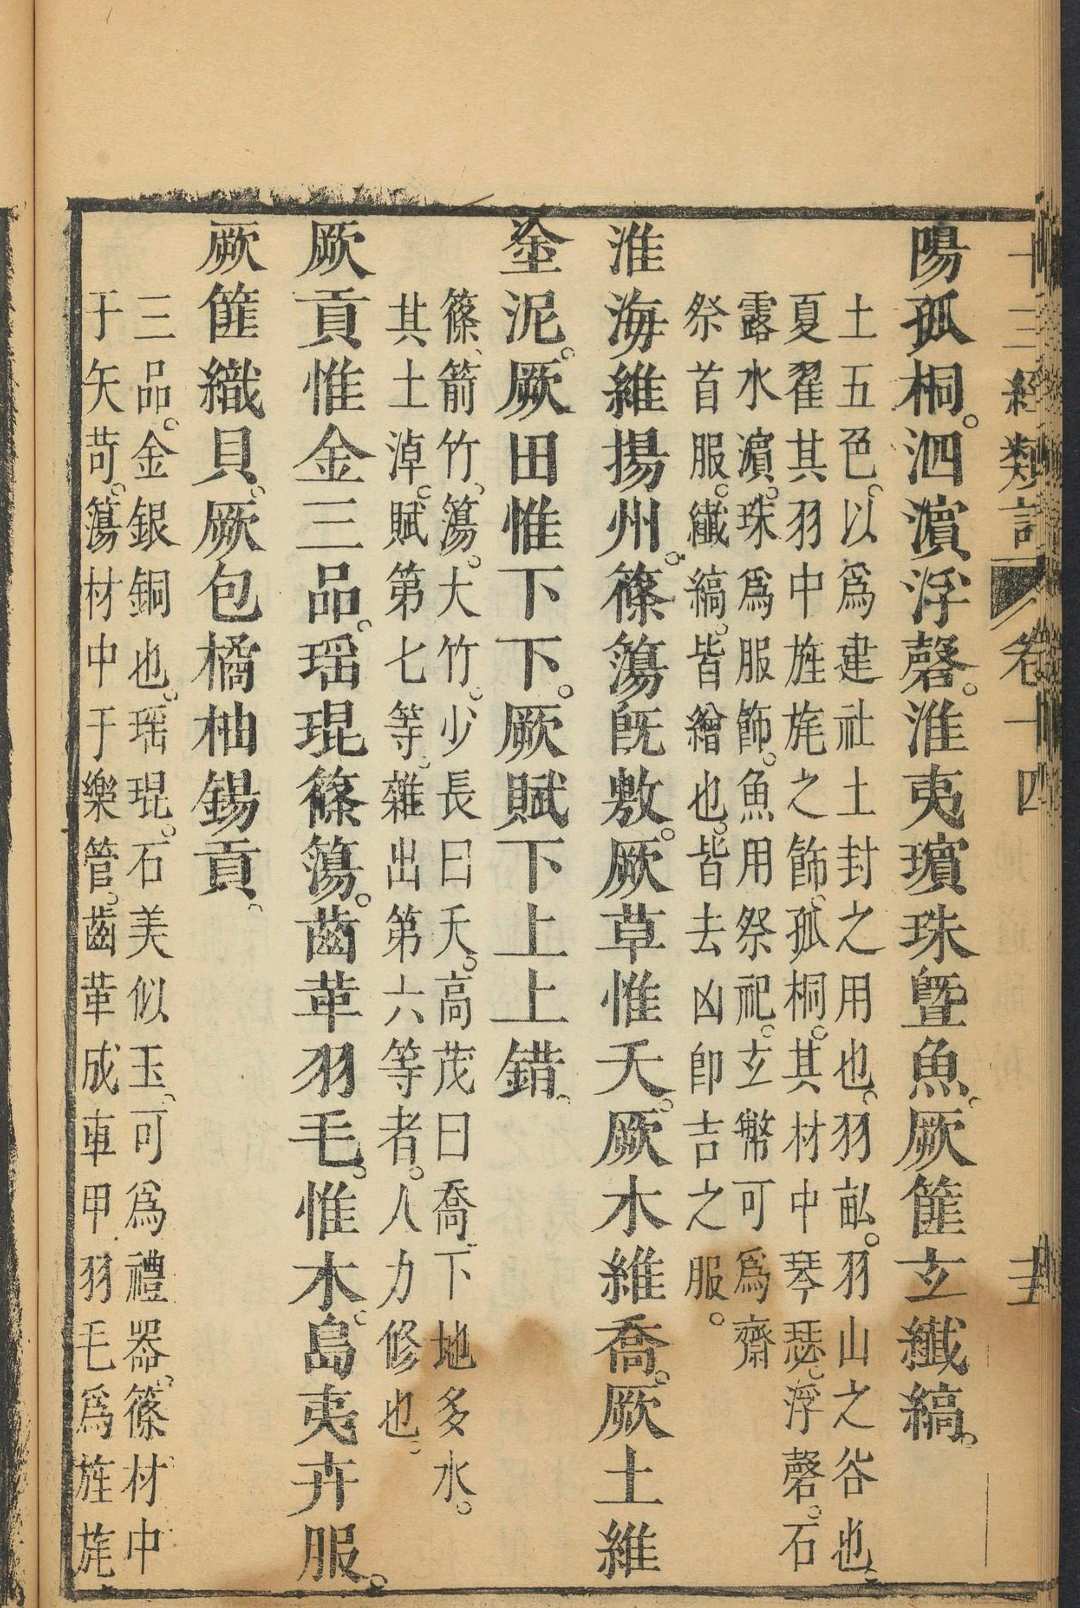 十三經類記 卷十四 十三
陽孤桐。泗濵浮磬。淮夷蠙珠曁魚。厥篚玄纖縞。
土五色。以爲建社土封之用也。羽畎。羽山之谷也。
夏翟其羽中旌旄之飾。孤桐。其材中琴瑟。浮磬。石
露水濵。珠爲服飾。魚用祭祀。玄幣可爲齋
祭首服。纖縞。皆繒也。皆去凶卽吉之服。
淮海維揚州。篠簜旣敷。厥草惟夭。厥木維喬。厥土維
塗泥。厥田惟下下。厥賦下上上錯。
篠、箭竹。簜。大竹。少長曰夭。高茂曰喬。下地多水。
其土淖。賦第七等。雜出第六等者。人力修也。
厥貢惟金三品。瑶琨篠簜。齒革羽毛。惟木。島夷卉服。
厥篚織貝。厥包橘柚錫貢。
三品。金銀銅也。瑶琨。石美似玉。可爲禮器。篠材中
于矢苛。簜材中于樂管。齒革成車甲羽毛爲旌旄